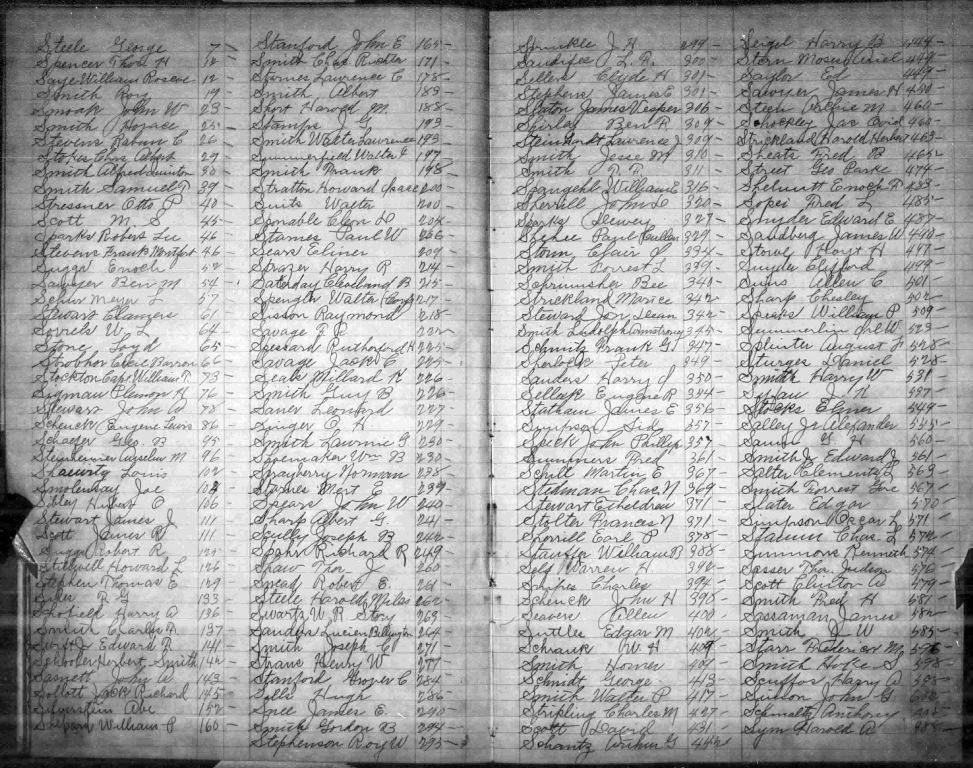 Steele George 7
Spencer Thos H 12
Saye William Roscoe 12
Smith Roy 19
Smoak John W 23
Smith Horace 25
Stevens Rabun C 26
Stokes Chas Albert 29
Smith Alfred Quinton 30
Smith Samuel T 39
Stressner Otto P 40
Scott M S 45
Sparks Robert Lee 46
Stevens Frank Montfort 46
Suggs Enoch 52
Sawyer Ben M 54
Schur Meyer L 57
Stewart 61
Sorrels W L 64
Stone Loyd 65
Strobhar Barron 66
Stockton Capt William T 73
Sigman Plemon H 76
Stewart John W 78
Schenck Eugene Lewis 86
Schaefer Geo. B 95
Steinheimer M 96
Shawartz Louis 102
Smolensky Joe 102
Sibley Hubert O 106
Stewart James J 111
Scott James R 111
Suggs Robert R 125
Stillwell Howard L 126
Stephen Thomas E 129
R G 133
Schofield Harry A 136
Smith Charles A 137
Swift Jr Edward R 141
Schooler Herbert Smith 142
Sarnett John W 143
Sollott Jack Richard 145
Silverstein Abe 152
William P 160
Stanford John E 165
Smith Chas Richter 171
Starnes Lawrence C 178
Smith Albert 183
Short Harold M. 188
Stamps J G 193
Smith Walter Lawrence 193
Summerfield Walter J 197
Smith Frank 198
Stratton Howard Isaac 200
Suits Walter 200
Sponable Cleon D 204
Stames Paul W 206
Sears Elmer 209
Strazer Harry R 214
Saturday Cleoland B 215
Spengler Walter 217
Sisson Raymond 218
Savage T P 222
Sessard Rutherford H 225
Savage Jack C 225
Seals Millard K 226
Smith Guy B 226
Saner Leonard 227
Singer O H 229
Smith Lawrnie G 230
Shoemaker Wm B 230
Spayberry Norman 238
Starnes Mert E 239
Spears John W 240
Sharp Albert G. 241
Scully Joseph B 242
Spahr Richard R 249
Shaw Thos J 260
Snead Robert E. 261
Steele Harold Miles 262
Swartz W R Story 263
Sanders Lucien Billington 264
Smith Joseph C 271
Strane Henry W 277
Stanford Grover C 284
Sells Hugh 286
Snee James E. 290
Smith Gordon B 294
Stephenson Roy W 295
Sprinkle J H 299
Sandifee J L R. 300
Sellers Clyde H 301
Stephens James E 301
Slaton James Vesper 306
Shirley Ben R 309
Steinhardt Lawrence J 309
Smith Jesse M 310
Smith 311
Spangehl William E 316
Sherrill John D 320
Sparks Dewey 327
Paul Cullen 329
Storm Clair G 334
Smith Forrest L 339
Sprunisher Bee 340
Strickland Marvee 342
Steward Jon Dean 342
Smith Ludolph Armstrong 345
Schmitz Frank G 347
Sherlock Peter 349
Sanders Harry J 350
Sellask Eugene P 354
Statham James E 356
Simpson Sid 357
Speck John Phillip 357
Summers Fred 361
Schill Martin E 367
Stedman Chas. N 369
Stewart Etheldred 371
Stolter Frances N 371
Sporrill Earl P 378
Stauffer William B 388
Self Warren H 390
Snipes Charley 394
Schenck John H 395
Seavers Allen 400
Suttles Edgar M 402
Schrank W H 409
Smith Homer 409
Schmidt George 413
Smith Walter P 417
Stripling Charles M 427
Scott David 431
Schantz Arthur G 442
Seigel Harry B 444
Stern Moses 449
Saylor Ed 449
Sawyer James H 450
Steen Vallie M 460
Shockley Jas Ovid 460
Strickland Harold Herbert 463
Sheats Fred B 465
Street Geo Parke 474
Shelnutt Enoch F 483
Sopes Fred L 485
Snyder Edward E 487
Sandberg James W 490
Stowe Hoyt H 497
Snyder Clifford 499
Sims Allen C 501
Sharp Chesley 502
Speaks William P 509
Summerlin W 523
Splinter August F 528
Sturges Daniel 528
Smith Harry W 531
J N 537
Stocks Elmer 549
Salley Jr Alexander 555
Sams G H 560
Smith Jr Edward J 561
Salter Clements L 563
Smith Forrest 567
Slater Edgar 570
Simpson Oscar L 571
Chas. L 572
Simmons Kenneth 574
Sasser Thos Judson 576
Scott Clinton W 579
Smith Fred H 581
Sassaman James 582
Smith J W 585
Starr Frederick M 596
Smith Hoke S 598
Scuffos Harry A
Sinlon John G 600
Schmaltz Anthony
Sym Harold W